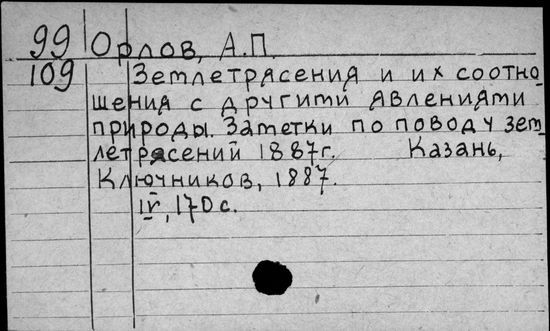 99 Орлов, А.П.
109 Землетрясения и их соотно-
шения с другими явлениями
природы. Заметки по поводу зем-
летрясений 1887г. Казань,
Ключников, 1887.
IV, 170 с.